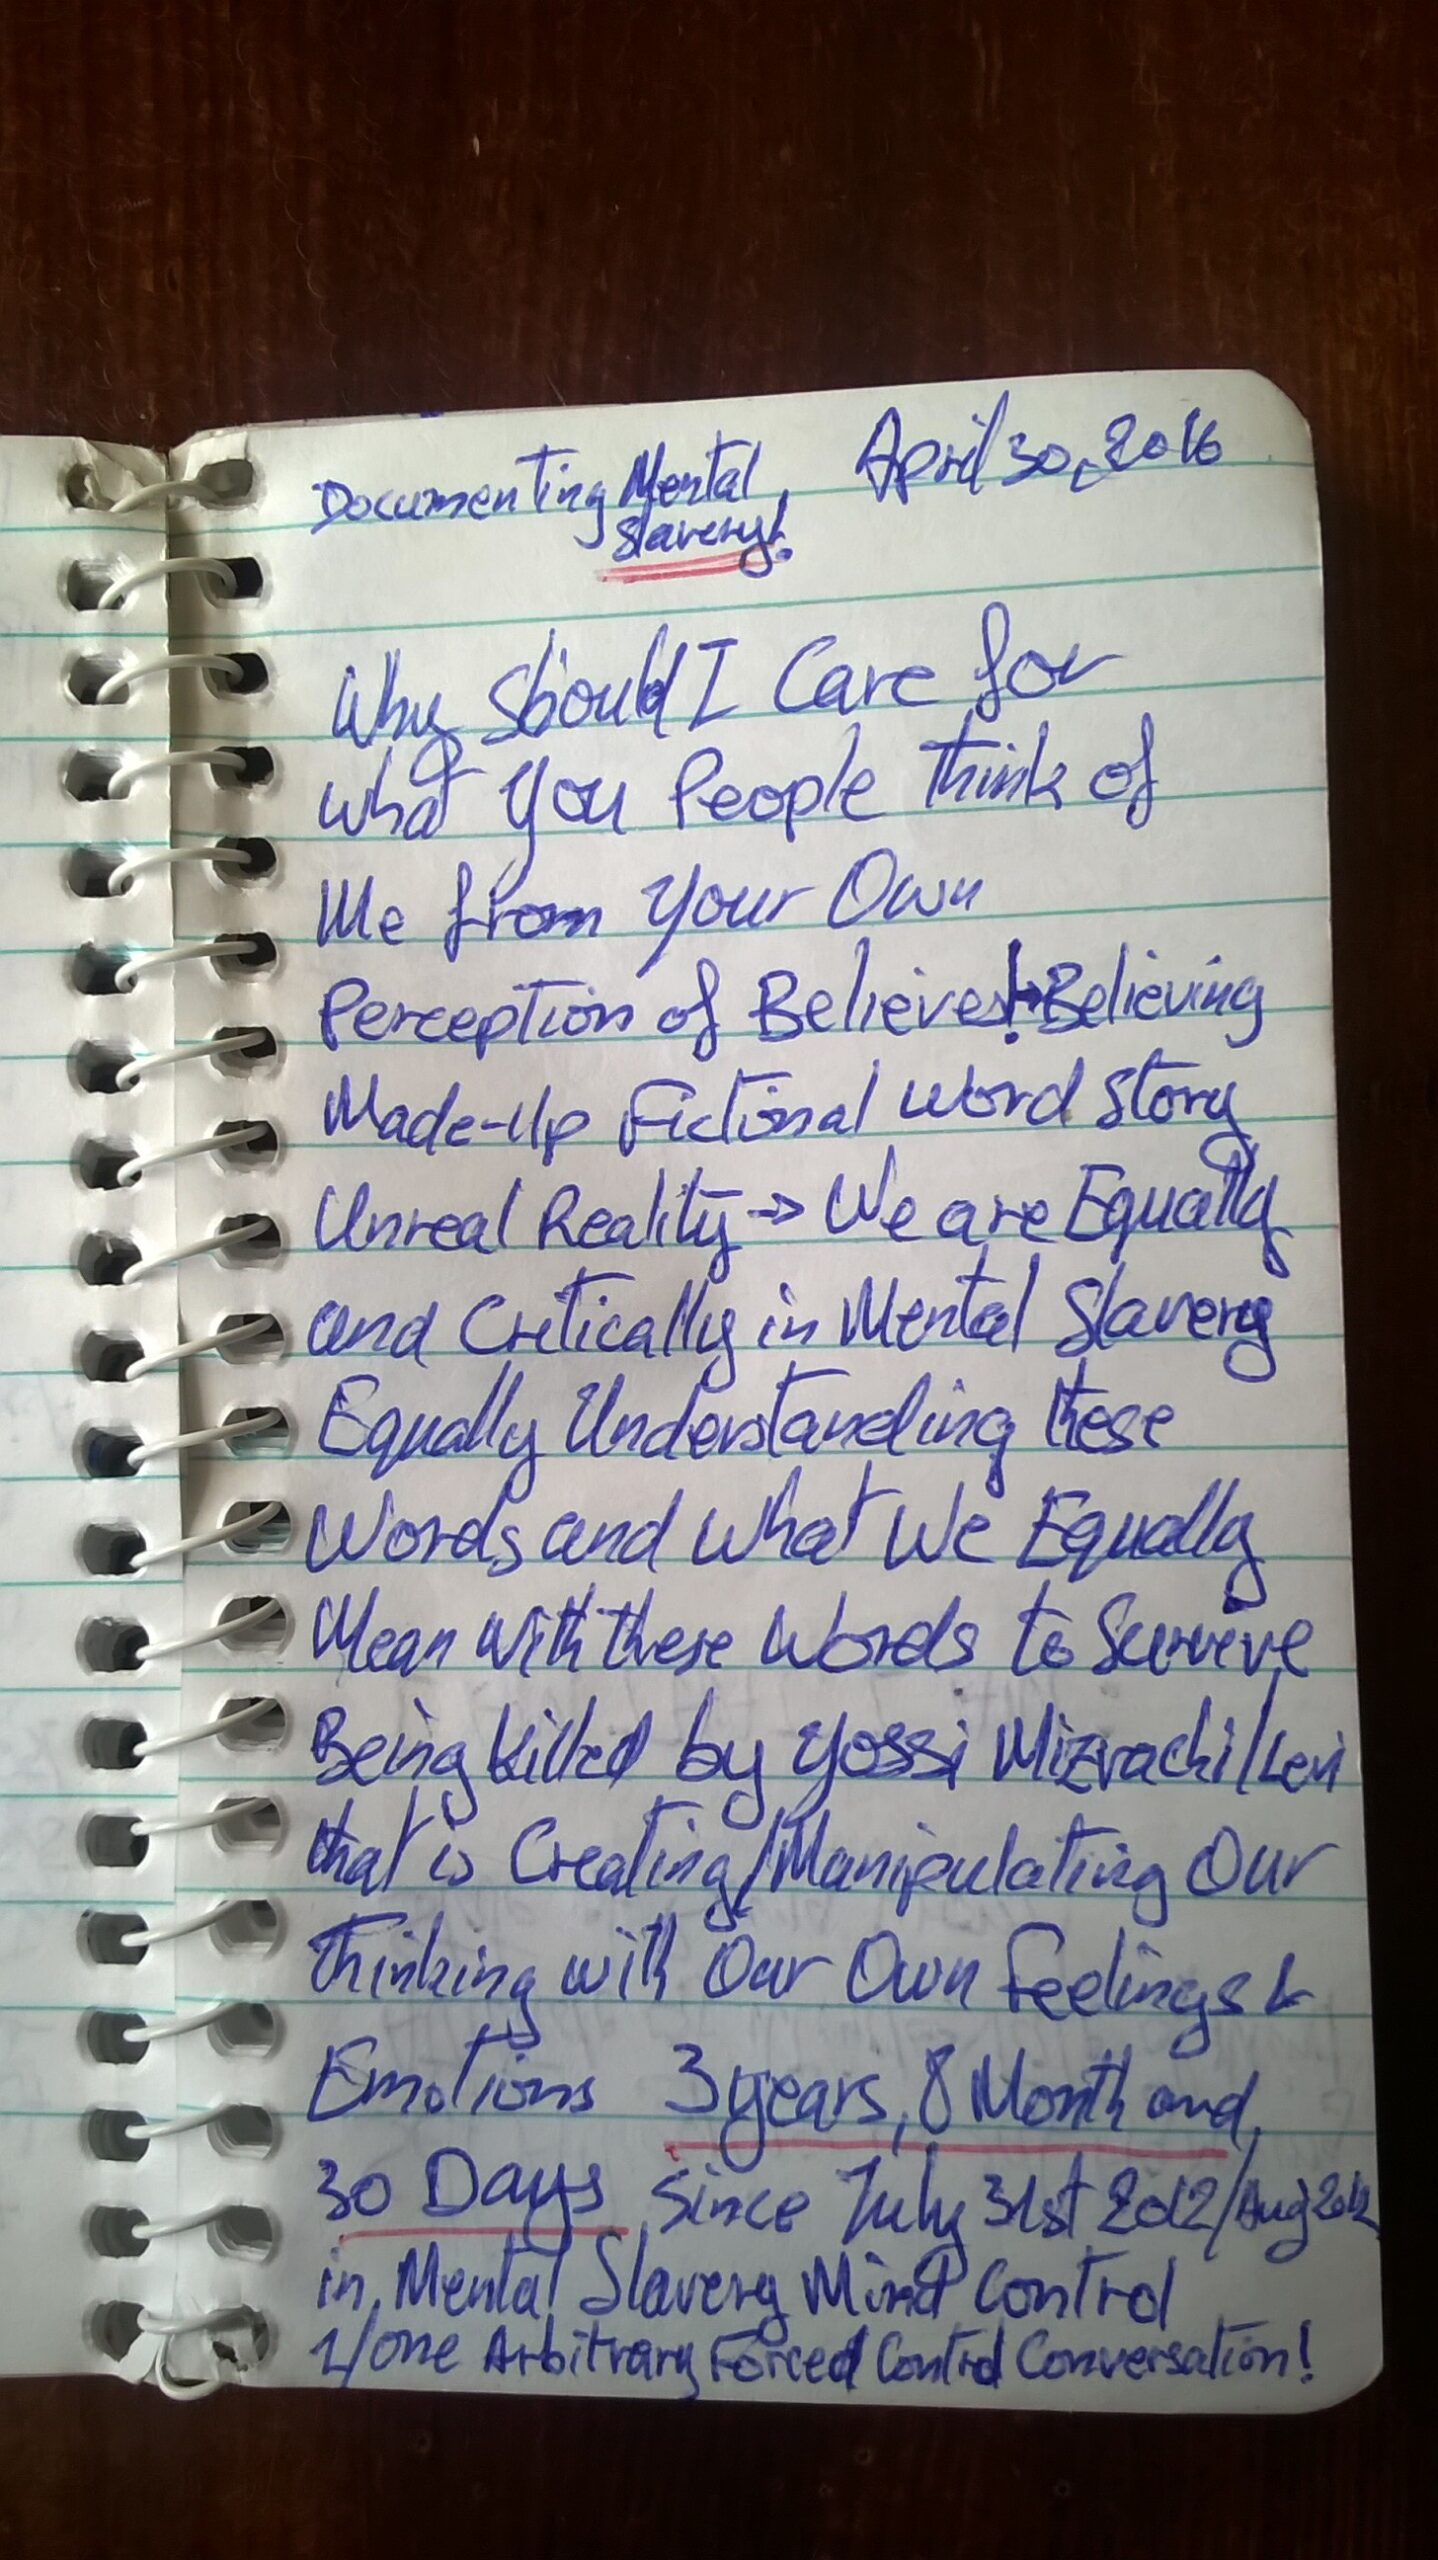 Documenting Mental, April 30, 2016
Slavery!
Why Should I Care for
what You People Think of
Me from Your Own
Perception of Believes! → Believing
Made-Up Fictional Word Story
Unreal Reality → We are Equally
and Critically in Mental Slavery
Equally Understanding these
Words and what We Equally
Mean with these Words to Survive
Being killed by Yossi Mizrachi/Levi
that is Creating/Manipulating Our
Thinking with Our Own Feelings &
Emotions 3 years, 8 Month and
30 Days since July 31st 2012/Aug 2012
in Mental Slavery Mind Control
1/one Arbitrary Forced Control Conversation!